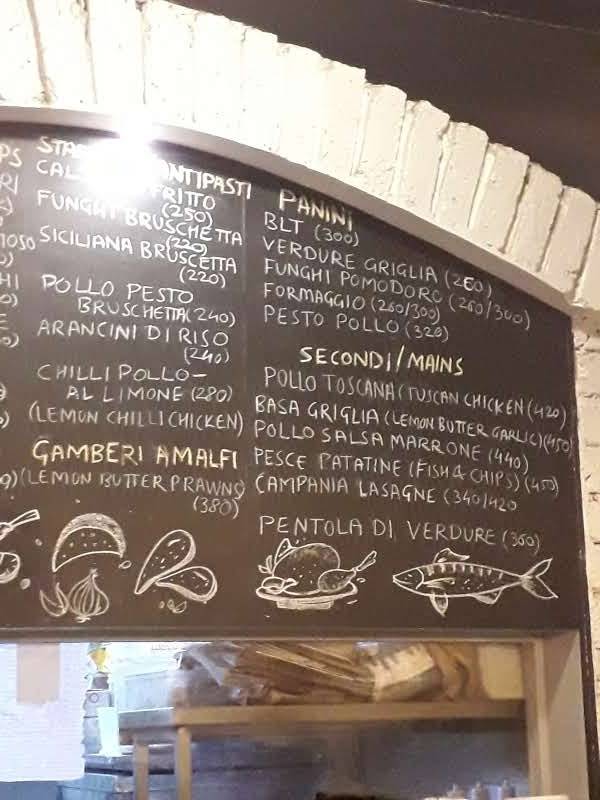 PS
RI
OSO
HI
STA ANTIPASTI
CAL FRITTO
(250)
FUNGHI BRUSCHETTA
(220)
SICILIANA BRUSCETTA
(220)
POLLO PESTO
BRUSCHETTA (240)
ARANCINI DI RISO
(240)
CHILLI POLLO-
AL LIMONE (280)
(LEMON CHILLI CHICKEN)
GAMBERI AMALFI
(LEMON BUTTER PRAWNS)
(380)
PANINI
BLT (300)
VERDURE GRIGLIA (260)
FUNGHI POMODORO (260/300)
FORMAGGIO (260/300)
PESTO POLLO (320)
SECONDI/MAINS
POLLO TOSCANA (TUSCAN CHICKEN (420)
BASA GRIGLIA (LEMON BUTTER GARLIC) (450)
POLLO SALSA MARRONE (440)
PESCE PATATINE (FISH & CHIPS) (450)
CAMPANIA LASAGNE (340/420
PENTOLA DI VERDURE (360)